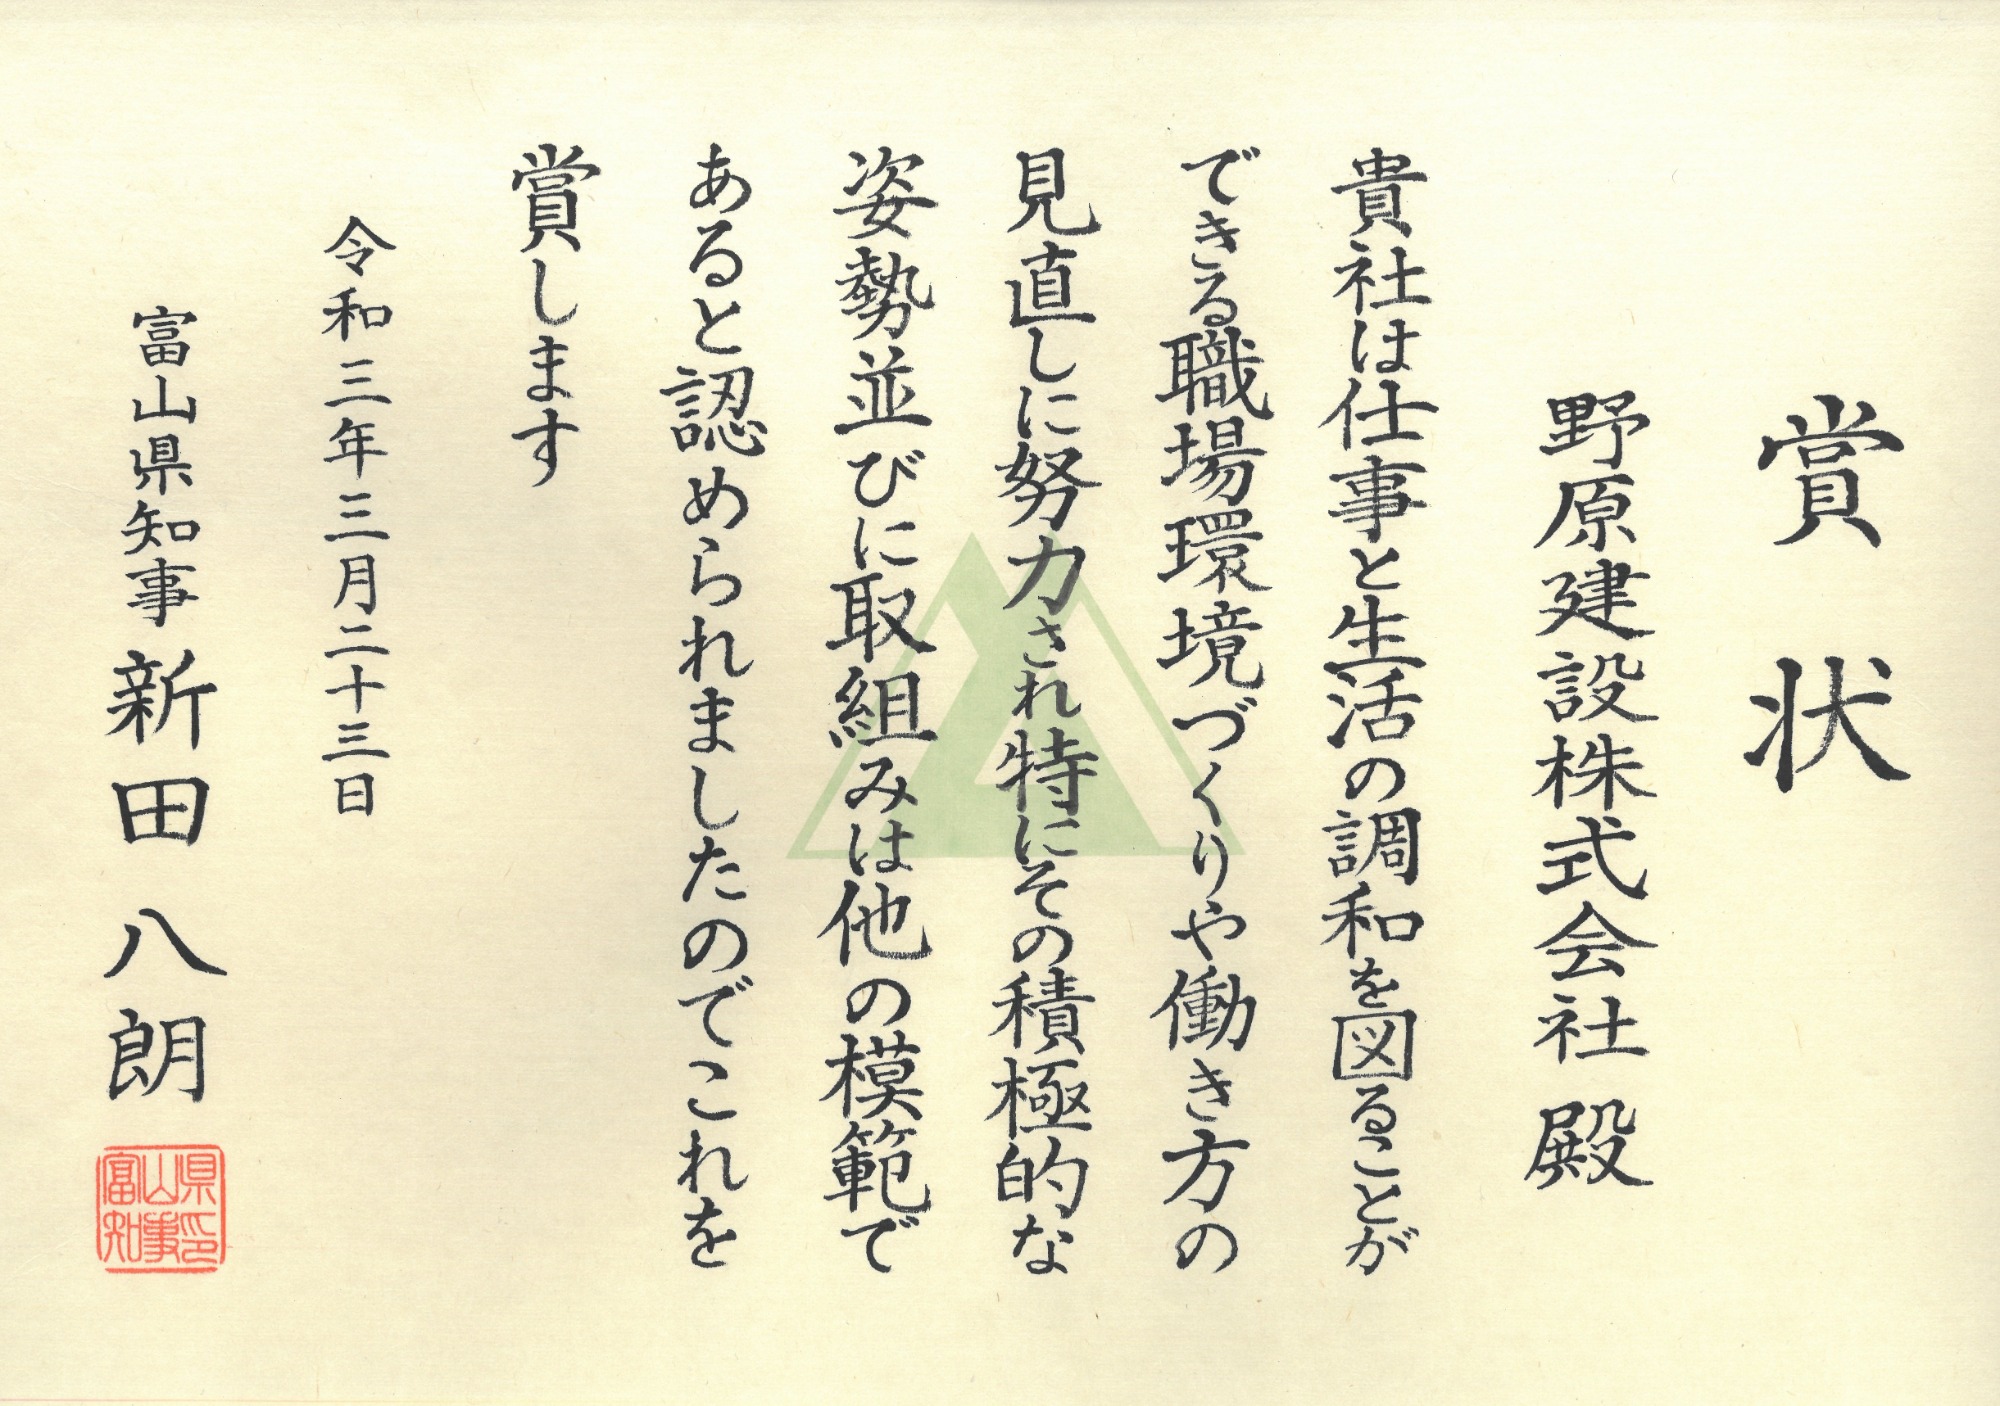 賞状
野原建設株式会社 殿
貴社は仕事と生活の調和を図ることが
できる職場環境づくりや働き方の
見直しに努力され特にその積極的な
姿勢並びに取組みは他の模範で
あると認められましたのでこれを
賞します
令和三年三月二十三日
富山県知事 新田八朗
富山県知事印